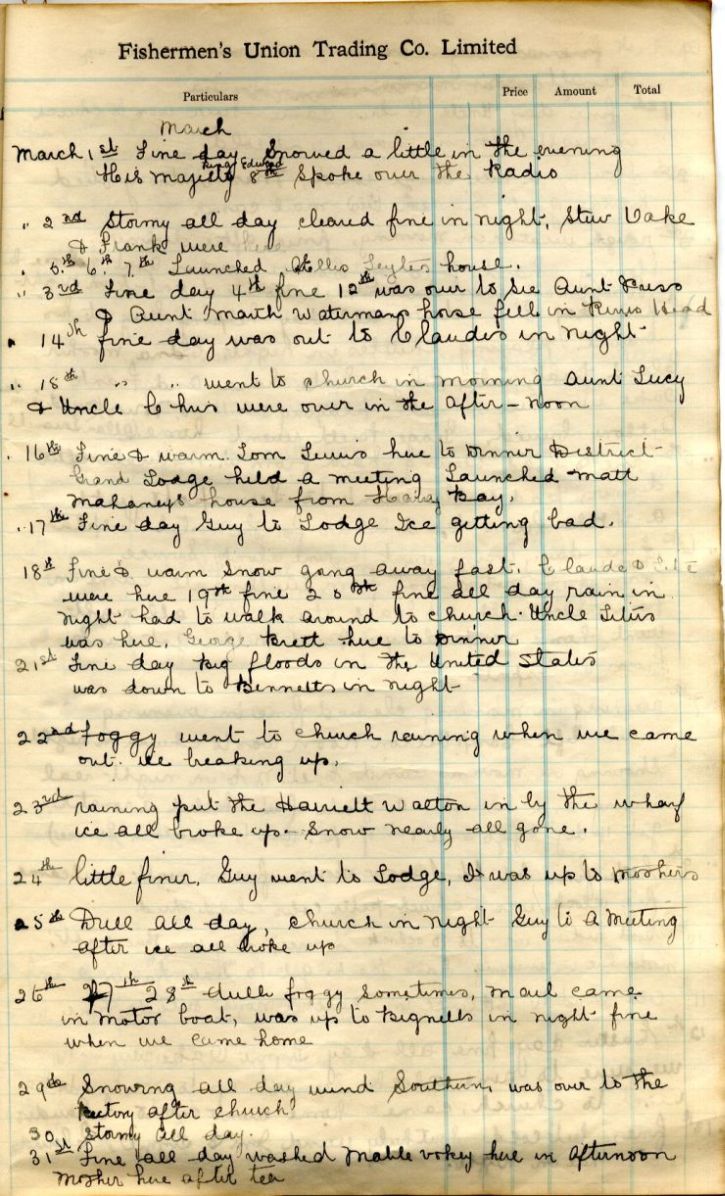 Fishermen's Union Trading Co. Limited
Particulars Price Amount Total
March
March 1st Fine day Snowed a little in the evening
His Majesty King Edward 8th Spoke over the Radio
" 2nd Stormy all day cleared fine in night. Stew Vake
& Frank were here
" 5th 6th 7th Launched house.
" 3rd Fine day 4th fine 12th was over to see Aunt
& Aunt Marth Watermans horse fell in Head
" 14th fine day was out to Claudes in night
" 18th " " went to church in morning Aunt Lucy
& Uncle Chris were over in the after-noon
" 16th Fine & warm Tom Lewis here to Dinner District
Grand Lodge held a meeting Launched Matt
Mahaneys house from Bay.
" 17th Fine day Guy to Lodge Ice getting bad.
18th Fine & warm Snow gong away fast. Claude &
were here 19th fine 20th fine all day rain in
night had to walk around to church. Uncle Titus
was here. George Brett here to Dinner
21st Fine day Big floods in the United States
was down to Bennetts in night
22nd Foggy went to church raining when we came
out. ice breaking up.
23rd raining put the Harriett Walton in by the wharf
ice all broke up. Snow nearly all gone.
24th little finer. Guy went to Lodge, I was up to Moshers
25th Dull all day, church in night Guy to a Meeting
after ice all broke up
26th 27th 28th dull foggy sometimes, mail came
in motor boat, was up to Bignells in night fine
when we came home
29th Snowing all day wind Southern, was over to the
Rectory after church
30 Stormy all day.
31st Fine all day washed Mable Vokey here in Afternoon
Mosher here after tea